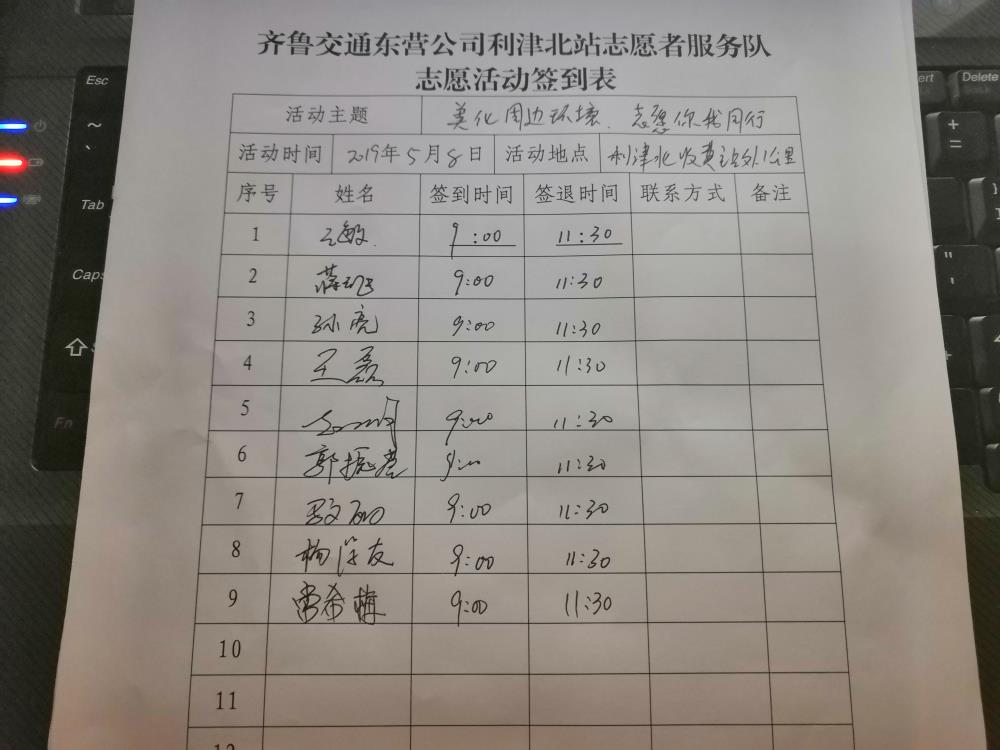 齐鲁交通东营公司利津北站志愿者服务队
志愿活动签到表
活动主题 美化周边环境、志愿你我同行
活动时间 2019年5月8日 活动地点 利津北收费站外1公里
序号 姓名 签到时间 签退时间 联系方式 备注
1 王敏 9:00 11:30
2 9:00 11:30
3 孙亮 9:00 11:30
4 王磊 9:00 11:30
5 9:00 11:30
6 郭振 9:00 11:30
7 9:00 11:30
8 杨洪友 9:00 11:30
9 常希梅 9:00 11:30
10
11
12
Esc
Tab
Caps
Fn
Delete